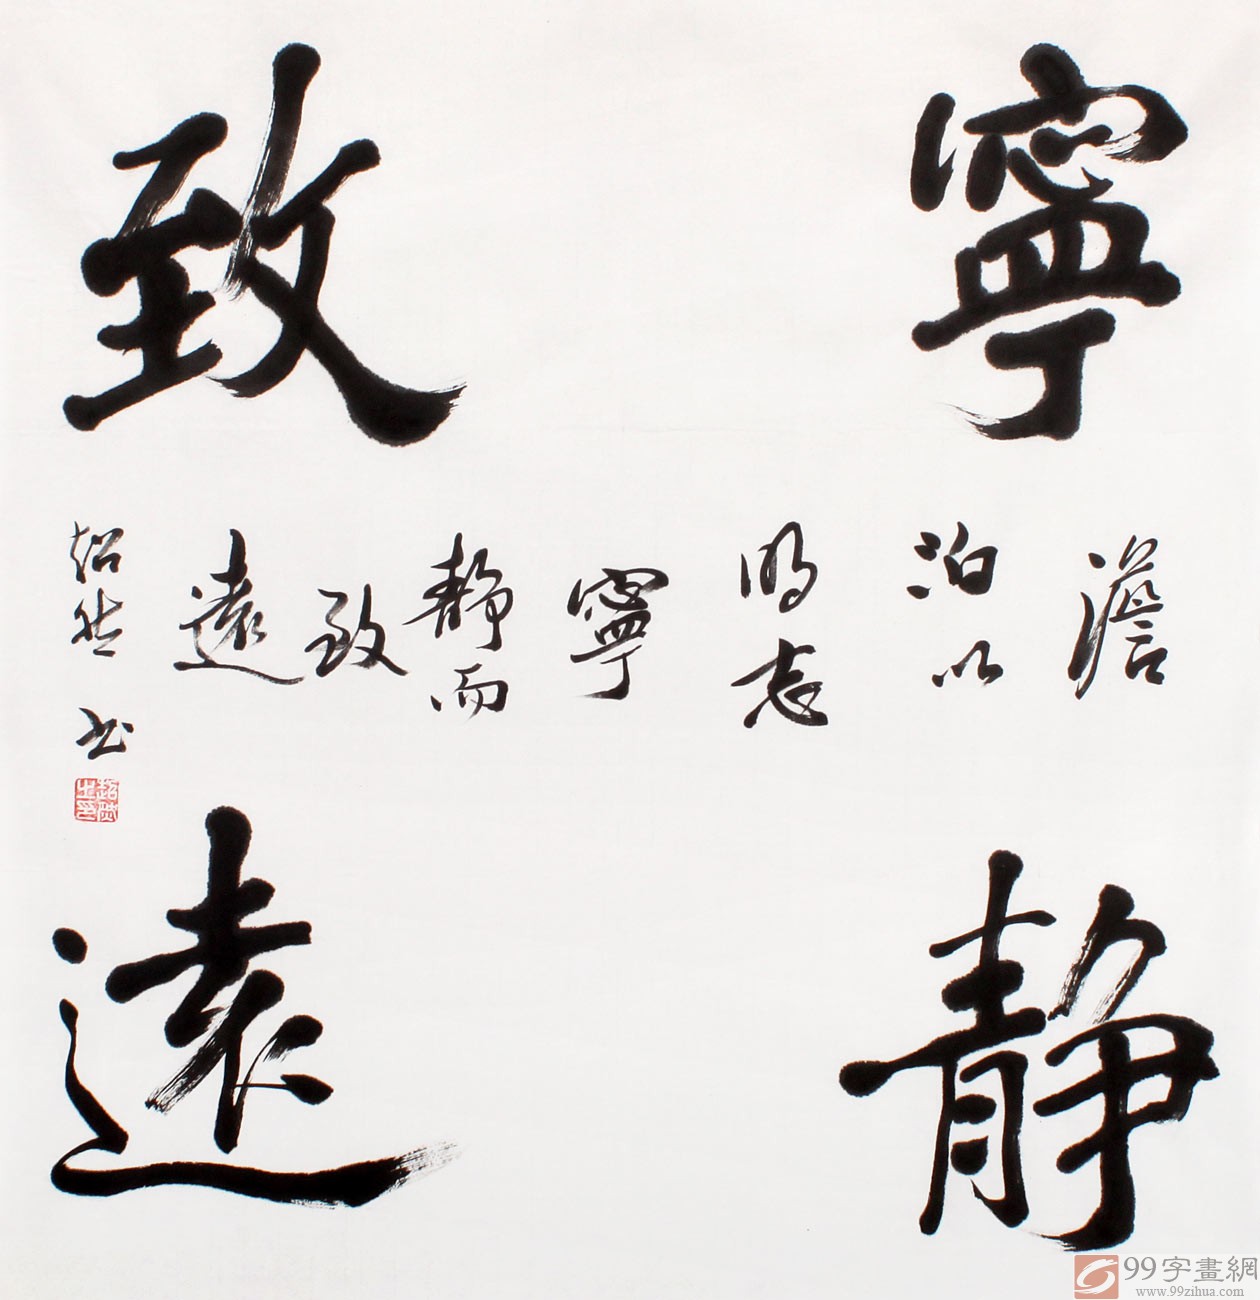 寧靜
致遠
澹
泊以
明志
寧
靜而
致
遠
超然書
超然之印
99字畫網
www.99zihua.com